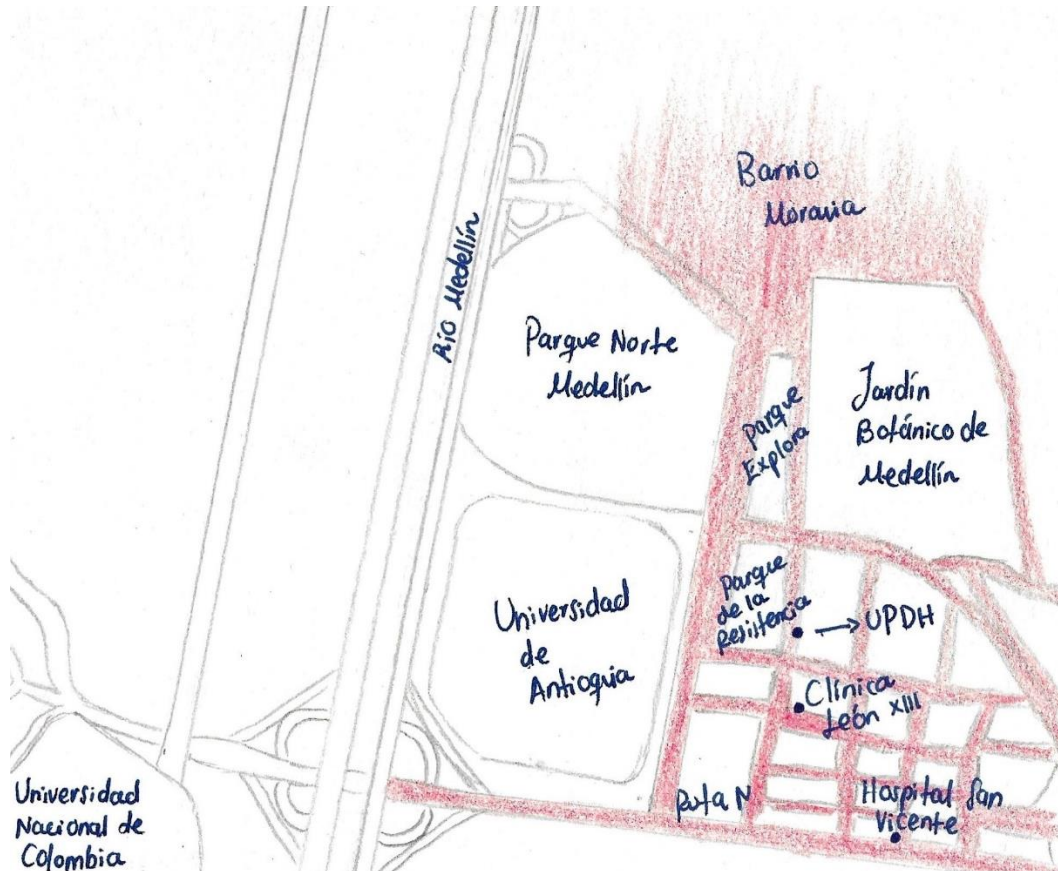 Barrio
Moravia
Río Medellín
Parque Norte
Medellín
Parque
Explora
Jardín
Botánico de
Medellín
Universidad
de
Antioquia
Parque
de la
Resistencia
UPDH
Clínica
León XIII
Ruta N
Hospital San
Vicente
Universidad
Nacional de
Colombia